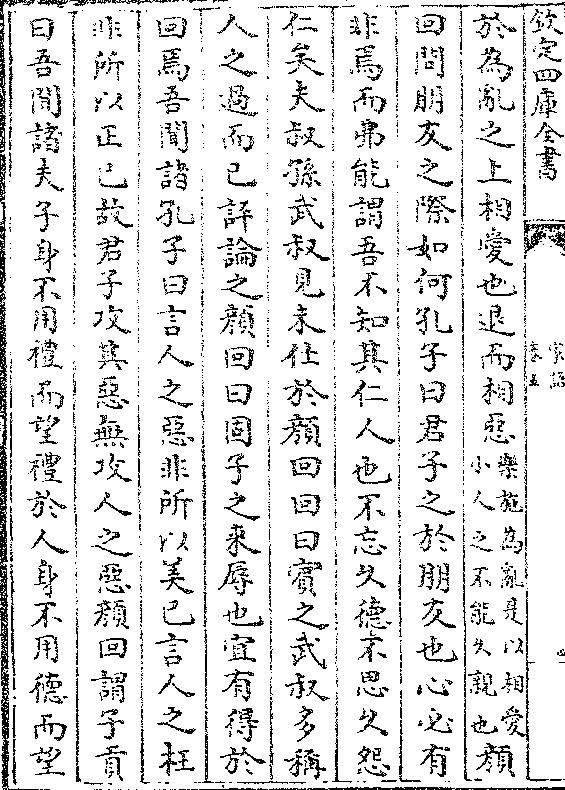 欽定四庫全書
家語
卷五
於為亂之上相愛也退而相惡樂施為亂是以相愛小人之不能久親也顔
回問朋友之際如何孔子曰君子之於朋友也心必有
非焉而弗能謂吾不知其仁人也不忘久德不思久怨
仁矣夫叔孫武叔見未仕於顔回回曰賔之武叔多稱
人之過而已評論之顔回曰固子之来辱也宜有得於
回焉吾聞諸孔子曰言人之惡非所以美已言人之枉
非所以正已故君子攻其惡無攻人之惡顔回謂子貢
曰吾聞諸夫子身不用禮而望禮於人身不用德而望